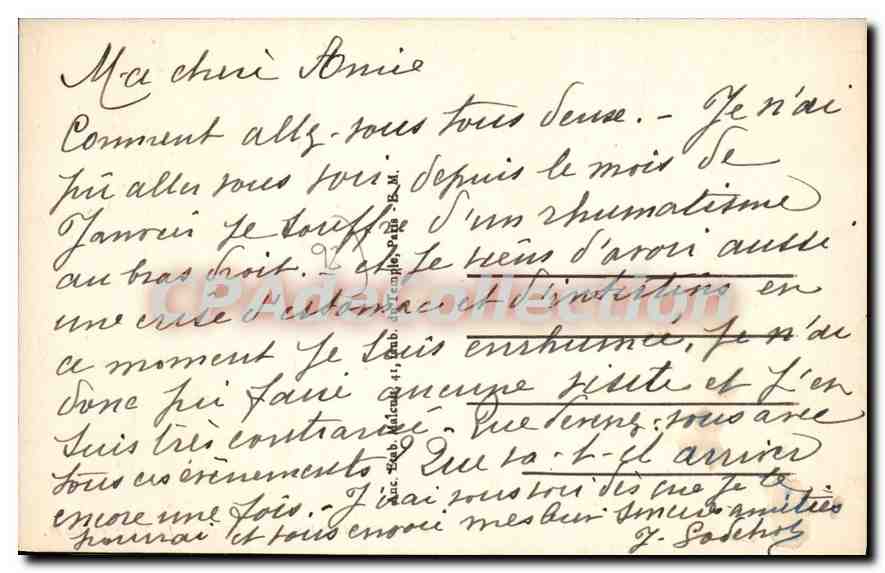 Ma chère Amie
Comment allez-vous tous deux. - Je n'ai
pu aller vous voir depuis le mois de
Janvier je souffre d'un rhumatisme
au bras droit. - et je viens d'avoir aussi
une crise d'estomac et d'intestins en
ce moment je suis enrhumée, je n'ai
donc pu faire aucune visite et j'en
suis très contrariée - Que devenez-vous avec
tous ces évènements? Que va-t-il arriver
encore une fois. - J'irai vous voir dès que je le
pourrai et vous envoie mes sincères amitiés
J.
Anc. Etab. Malcuit, 41, Faub. du Temple, Paris - E. M.
CPA de Collection